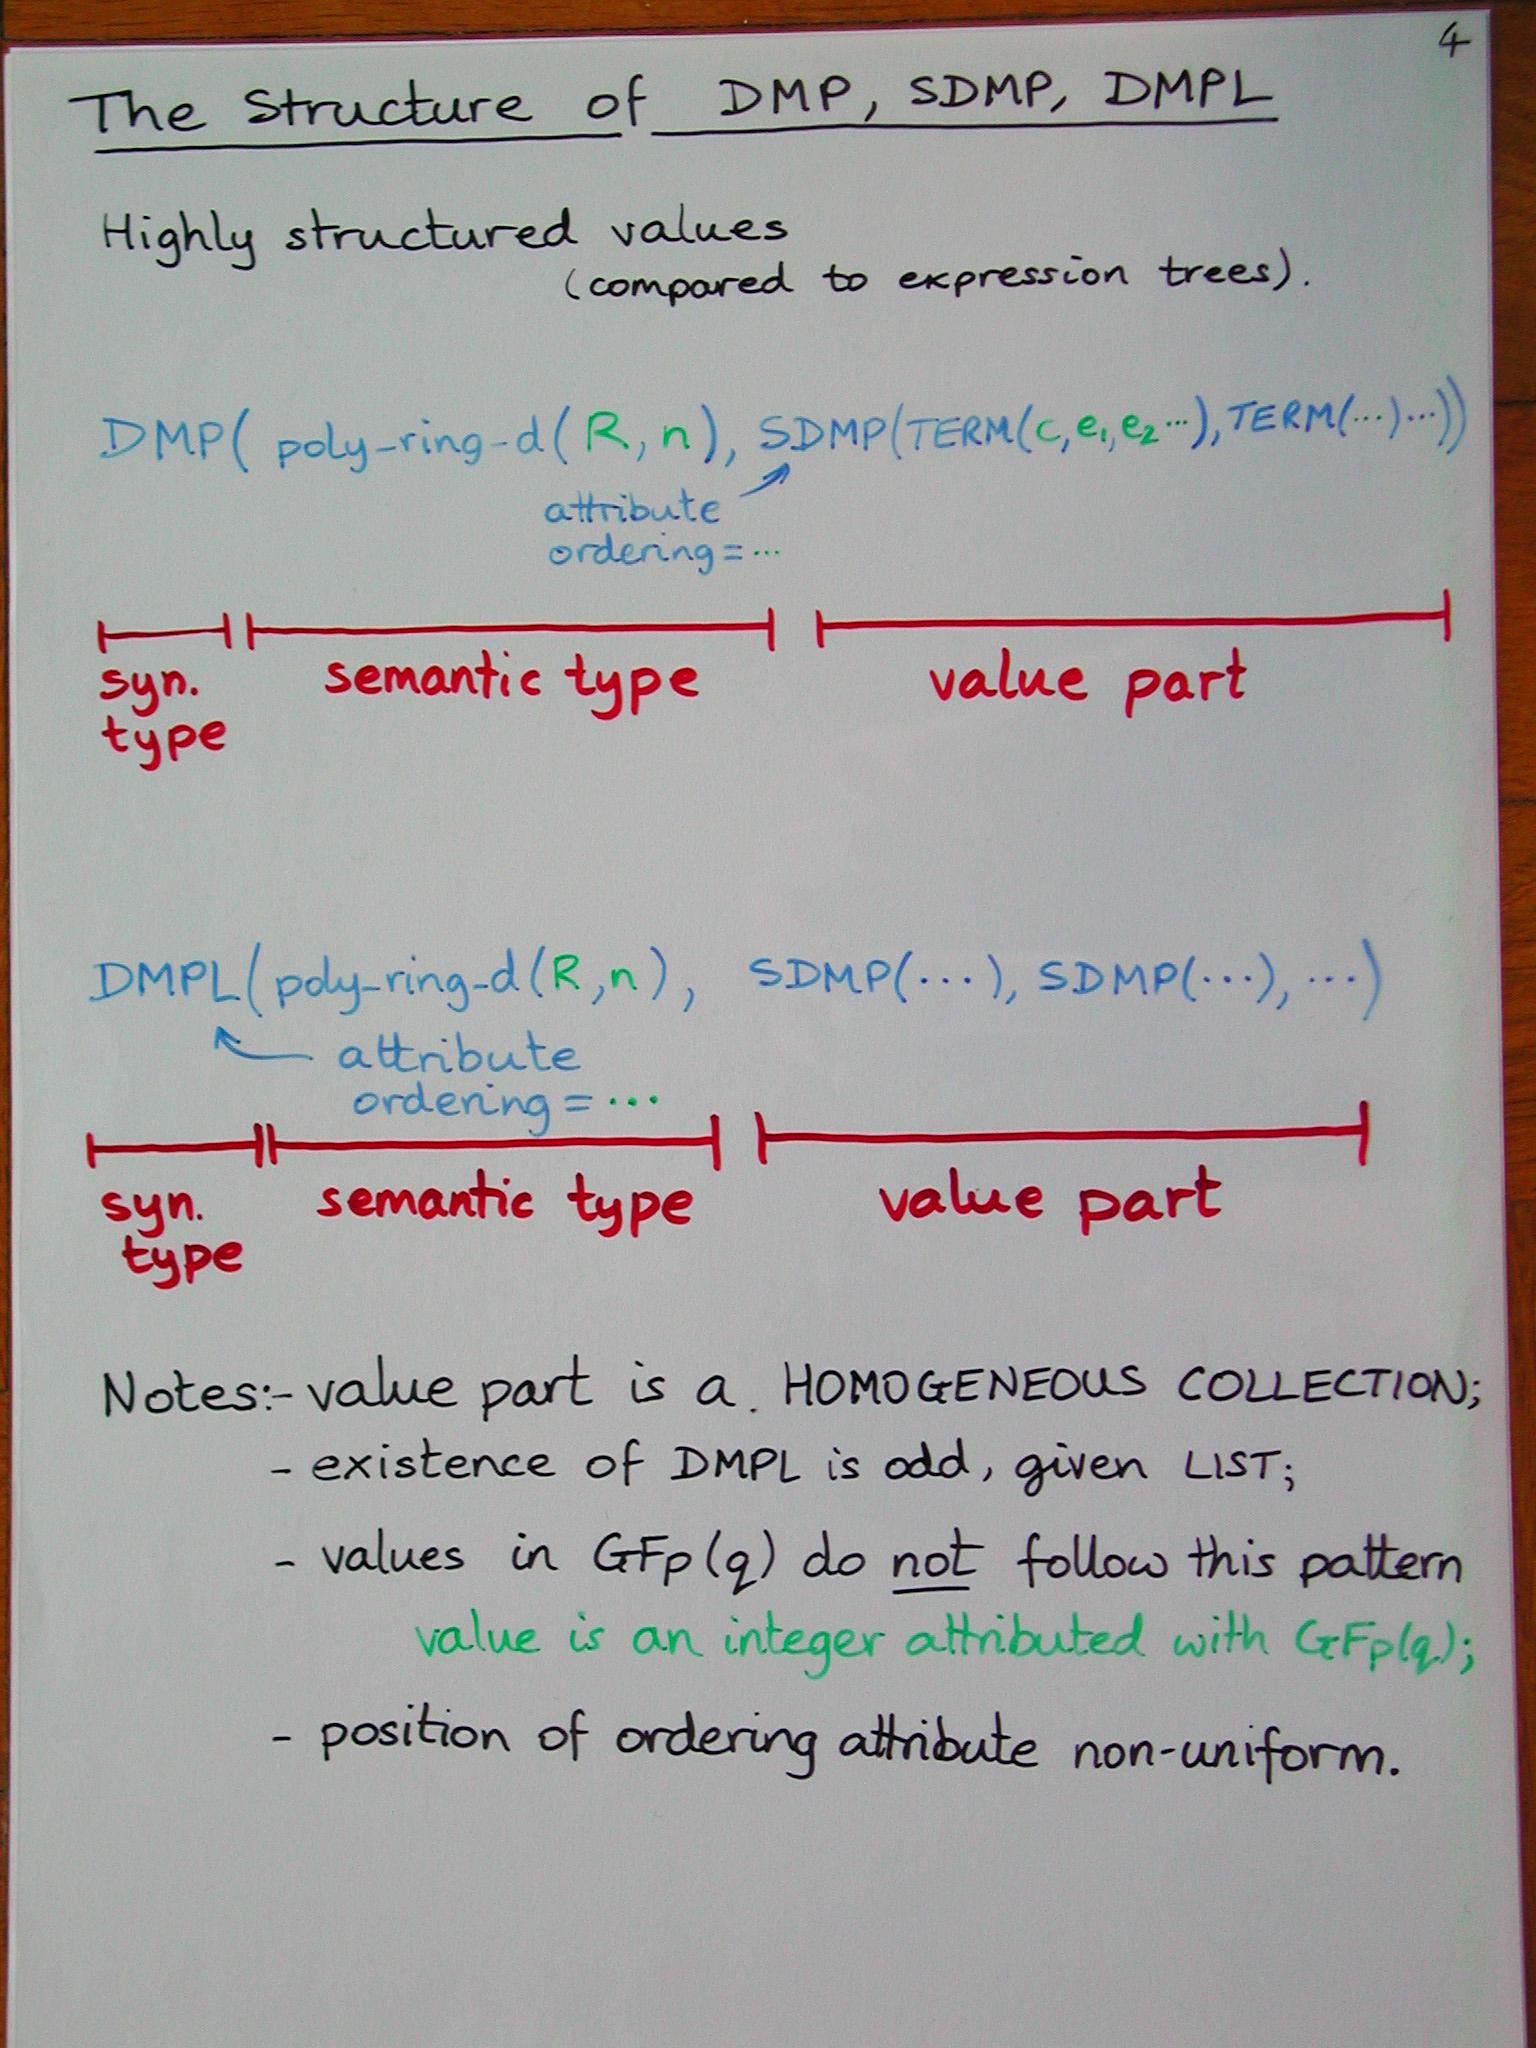 4
The Structure of DMP, SDMP, DMPL
Highly structured values
(compared to expression trees).
DMP( poly-ring-d(R,n), SDMP(TERM(c,e₁,e₂...),TERM(...)...))
attribute
ordering = ...
syn. type
semantic type
value part
DMPL(poly-ring-d(R,n), SDMP(...), SDMP(...), ...)
attribute
ordering = ...
syn. type
semantic type
value part
Notes:- value part is a HOMOGENEOUS COLLECTION;
- existence of DMPL is odd, given LIST;
- values in GFp(q) do not follow this pattern
value is an integer attributed with GFp(q);
- position of ordering attribute non-uniform.